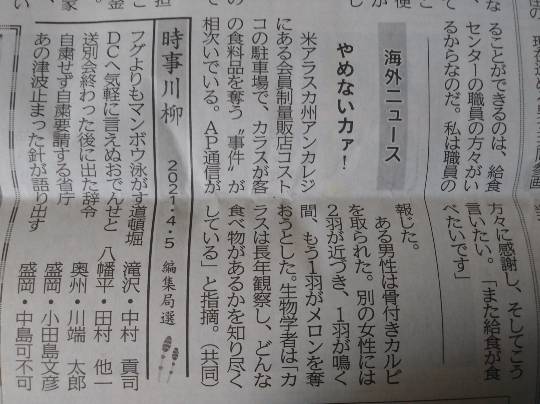 ることができるのは、給食
センターの職員の方々がい
るからなのだ。私は職員の
方々に感謝し、そしてこう
言いたい。「また給食が食
べたいです」
海外ニュース
やめないカァ！
米アラスカ州アンカレジ
にある会員制量販店コスト
コの駐車場で、カラスが客
の食料品を奪う〝事件〟が
相次いでいる。AP通信が
報じた。
ある男性は骨付きカルビ
を取られた。別の女性には
2羽が近づき、1羽が鳴く
間、もう1羽がメロンを奪
おうとした。生物学者は「カ
ラスは長年観察し、どんな
食べ物があるかを知り尽く
している」と指摘。（共同）
時事川柳 2021・4・5 編集局選
フグよりもマンボウ泳がす道頓堀 滝沢・中村 貢司
DCへ気軽に言えぬおでんせと 八幡平・田村 他一
送別会終わった後に出た辞令 奥州・川端 太郎
自粛せず自粛要請する省庁 盛岡・小田島文彦
あの津波止まった針が語り出す 盛岡・中島可不可